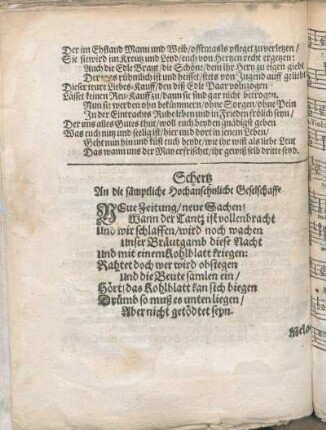 Der im Ehstand Mann und Weib / offtmals pfleget zu verletzen /
Sie sie wird im Kreutz und Leyd / euch von Hertzen recht ergetzen:
Auch die Edle Braut / die Schöne / dem ihr Hertz zu eigen giebt
Der rühmlich ist und heisset / stets von Jugend auff geliebt
Dieser teure Liebes-Kauff / den diß Edle Paar vollnzogen
Lässet keinen Reu-Kauff zu / dann sie sind gar nicht betrogen.
Nun sie werden ohn bekümmern / ohne Sorgen / ohne Pein
In der Eintrachts Ruhe leben und in Frieden frölich seyn /
Der uns alles Gutes thut / woll euch beyden gnädigst geben
Was euch nutz und seelig ist / hier und dort in jenem Leben /
Geht nun hin und küst euch beyde / wie ihr wist als liebe Leut
Das wann uns der May erfrischet / ihr gewiß selb dritte seyd.
Schertz
An die sämptliche Hochansehnliche Gesellschafft
NEue Zeitung / neue Sachen /
Wann der Tantz ist vollenbracht
Und wir schlaffen / wird noch wachen
Unser Bräutgamb diese Nacht
Und mit einem Kohlblatt kriegen:
Rahtet doch wer wird obsiegen
Und die Beute samlen ein /
Hört / das Kohlblatt kan sich biegen
Drümb so muß es unten liegen /
Aber nicht getödtet seyn.